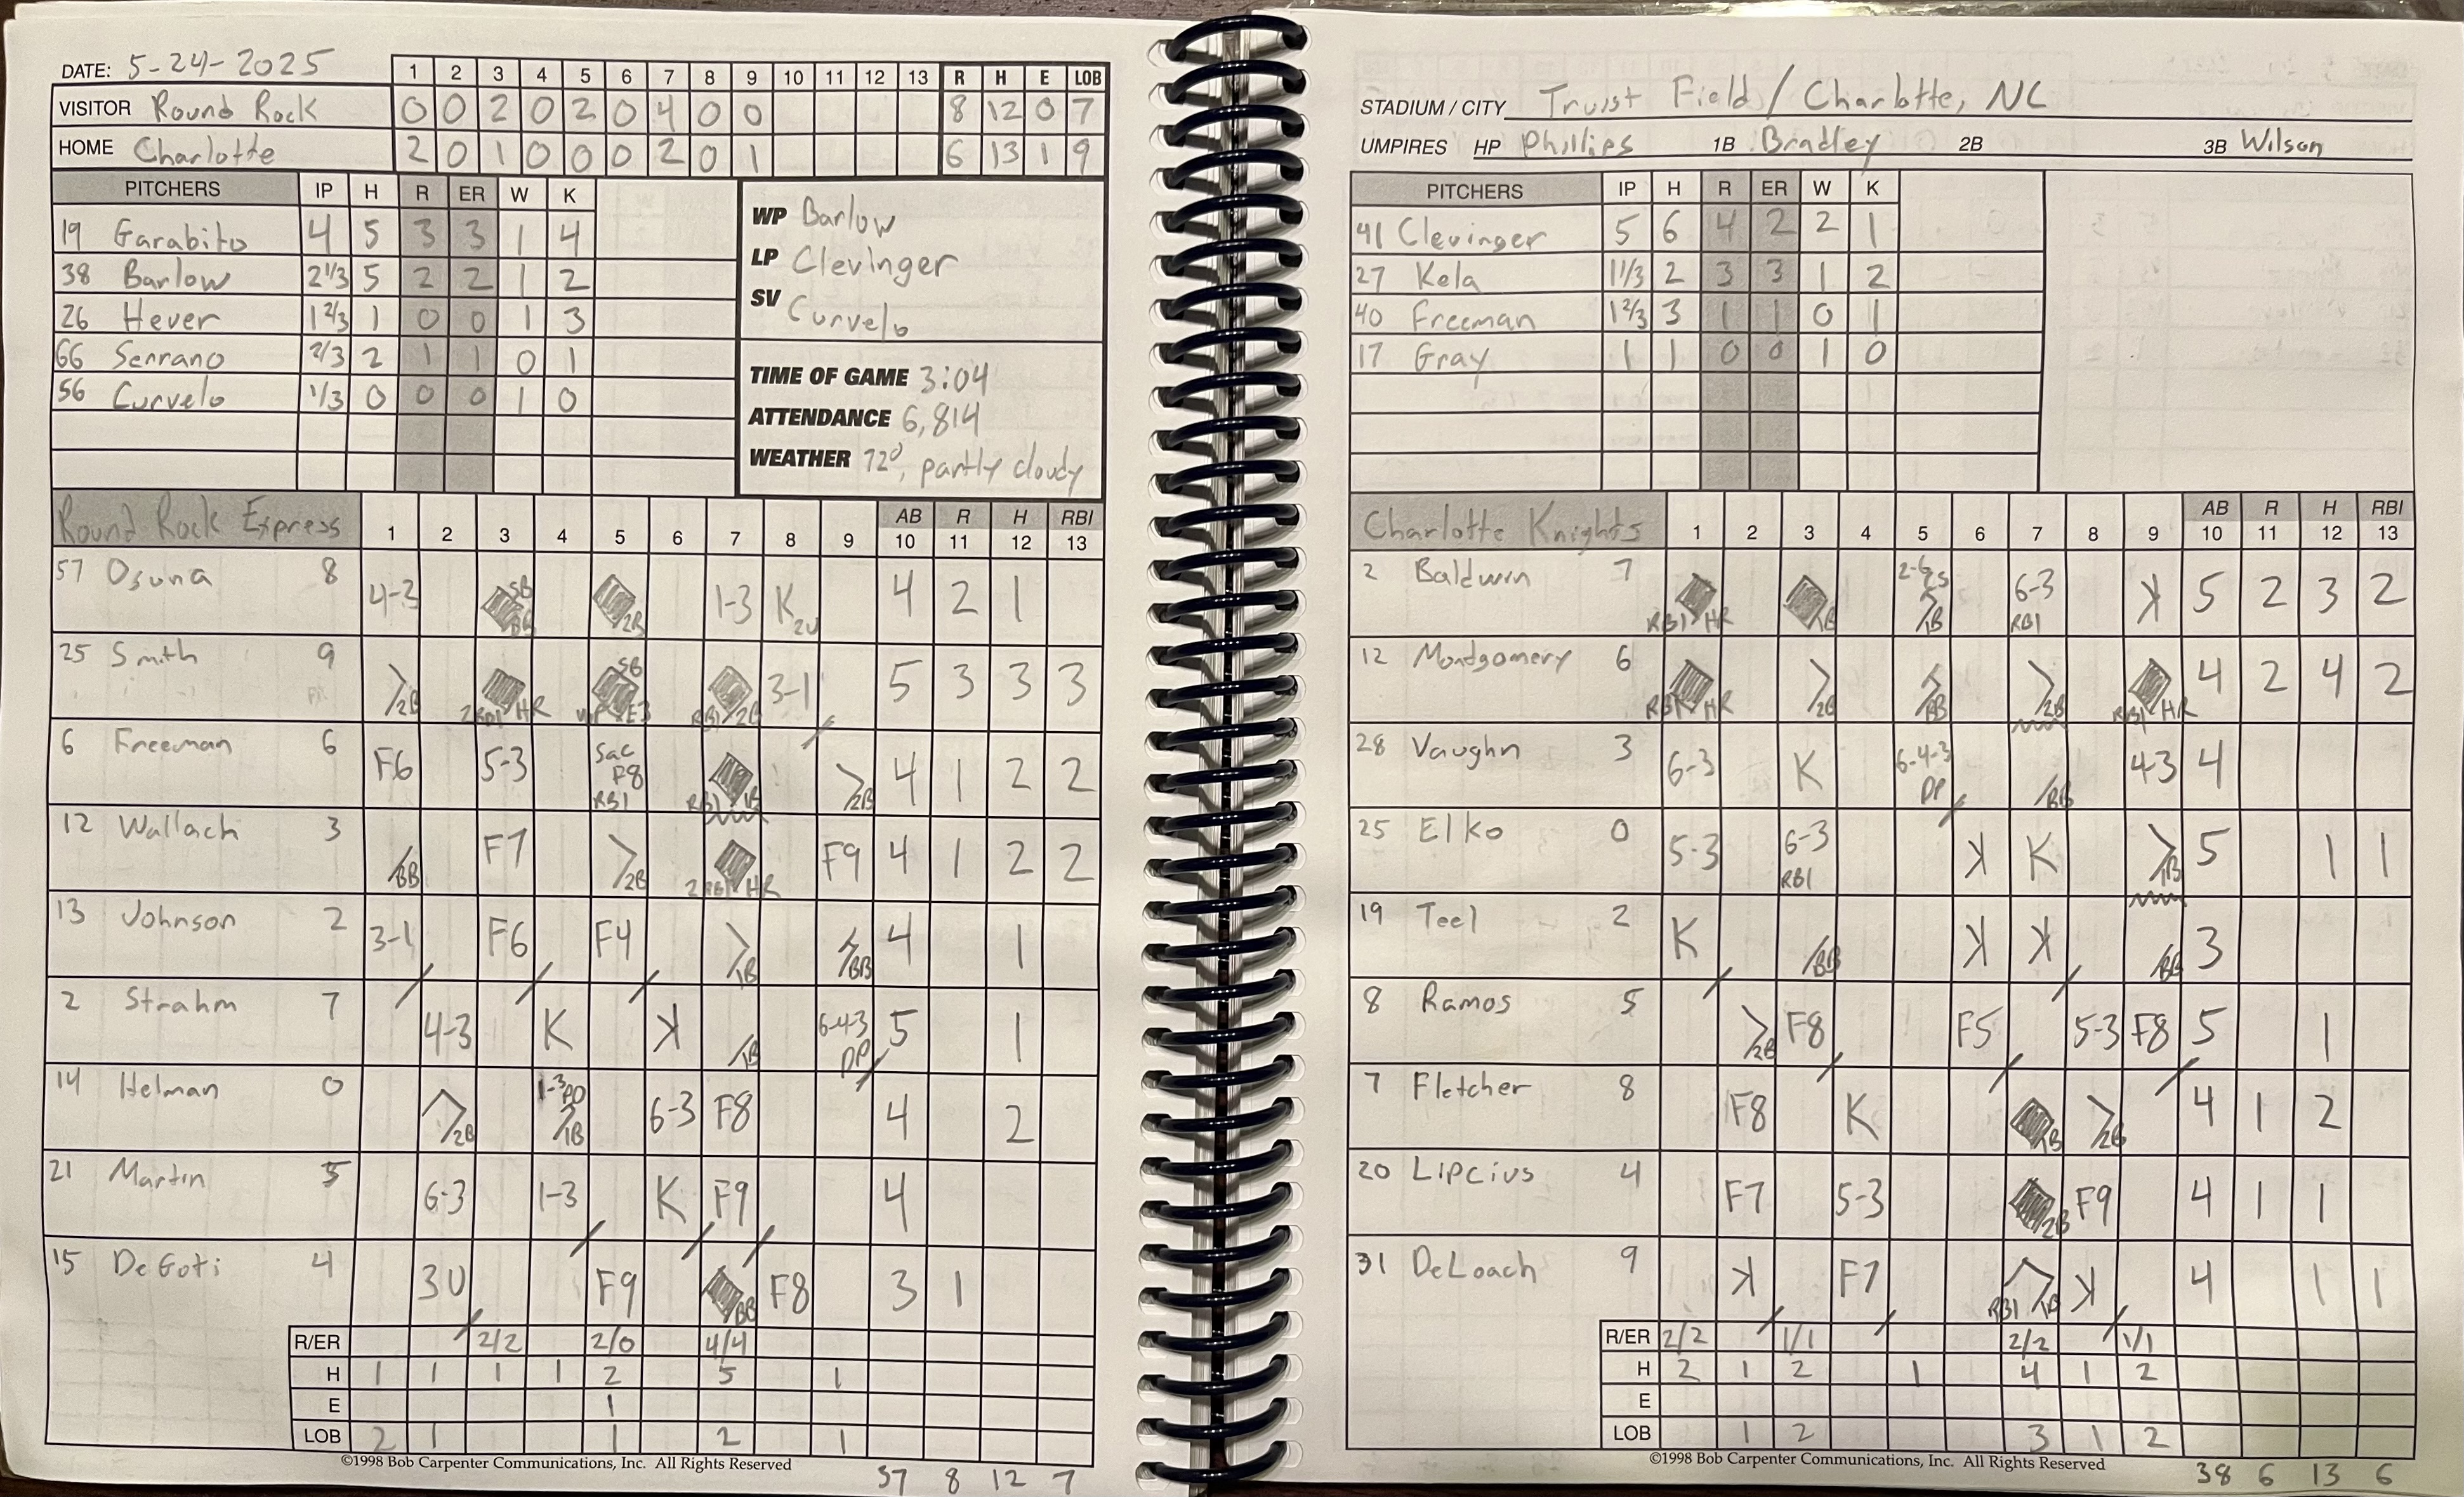 DATE: 5-24-2025 1 2 3 4 5 6 7 8 9 10 11 12 13 R H E LOB
VISITOR Round Rock 0 0 2 0 2 0 4 0 0 8 12 0 7
HOME Charlotte 2 0 1 0 0 0 2 0 1 6 13 1 9
PITCHERS IP H R ER W K
19 Garabito 4 5 3 3 1 4
38 Barlow 2 1/3 5 2 2 1 2
26 Hever 1 2/3 1 0 0 1 3
66 Serrano 2/3 2 1 1 0 1
56 Curvelo 1/3 0 0 0 1 0
WP Barlow
LP Clevinger
SV Curvelo
TIME OF GAME 3:04
ATTENDANCE 6,814
WEATHER 72°, partly cloudy
Round Rock Express 1 2 3 4 5 6 7 8 9 AB 10 R 11 H 12 RBI 13
57 Osuna 8 4-3 SB BB 2B 1-3 K 2U 4 2 1
25 Smith 9 2B 2RBI HR SB WP E3 RBI 2B 3-1 5 3 3 3
6 Freeman 6 F6 5-3 Sac F8 RBI RBI 1B 2B 4 1 2 2
12 Wallach 3 BB F7 2B 2RBI HR F9 4 1 2 2
13 Johnson 2 3-1 F6 F4 1B BB 4 1
2 Strahm 7 4-3 K K 1B 6-4-3 DP 5 1
14 Helman 0 2B 1-3 PO 1B 6-3 F8 4 2
21 Martin 5 6-3 1-3 K F9 4
15 DeGoti 4 3U F9 BB F8 3 1
R/ER 2/2 2/0 4/4
H 1 1 1 1 2 5 1
E 1
LOB 2 1 1 2 1
©1998 Bob Carpenter Communications, Inc. All Rights Reserved
37 8 12 7
STADIUM / CITY Truist Field / Charlotte, NC
UMPIRES HP Phillips 1B Bradley 2B 3B Wilson
PITCHERS IP H R ER W K
41 Clevinger 5 6 4 2 2 1
27 Kela 1 1/3 2 3 3 1 2
40 Freeman 1 2/3 3 1 1 0 1
17 Gray 1 1 0 0 1 0
Charlotte Knights 1 2 3 4 5 6 7 8 9 AB 10 R 11 H 12 RBI 13
2 Baldwin 7 RBI HR 1B 2-6 CS 1B 6-3 RBI K 5 2 3 2
12 Montgomery 6 RBI HR 2B BB 2B RBI HR 4 2 4 2
28 Vaughn 3 6-3 K 6-4-3 DP BB 4-3 4
25 Elko 0 5-3 6-3 RBI K K 1B 5 1 1
19 Teel 2 K BB K K BB 3
8 Ramos 5 2B F8 F5 5-3 F8 5 1
7 Fletcher 8 F8 K 1B 2B 4 1 2
20 Lipcius 4 F7 5-3 2B F9 4 1 1
31 DeLoach 9 K F7 RBI 1B K 4 1 1
R/ER 2/2 1/1 2/2 1/1
H 2 1 2 1 4 1 2
E
LOB 1 2 3 1 2
©1998 Bob Carpenter Communications, Inc. All Rights Reserved
38 6 13 6